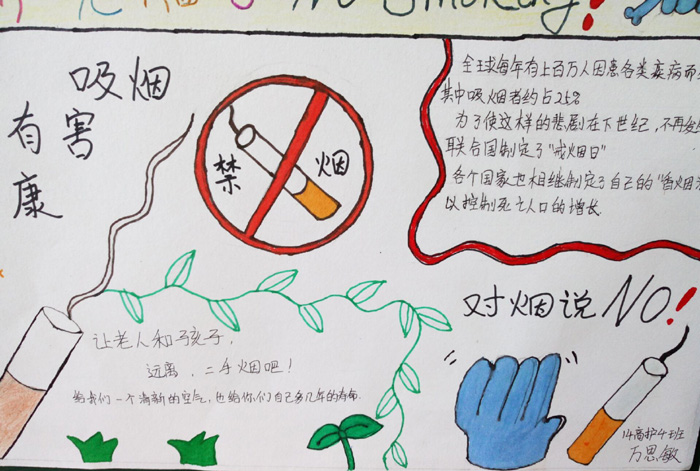 No Smoking!
吸烟
有害
康
禁烟
全球每年有上百万人因患各类疾病而
其中吸烟者约占25%
为了使这样的悲剧在下世纪,不再
联合国制定了"戒烟日"
各个国家也相继制定了自己的"香烟
以控制死亡人口的增长.
对烟说NO!
让老人和孩子,
远离、二手烟吧!
给我们一个清新的空气,也给你们自己多几年的寿命.
14高护4班
万思敏